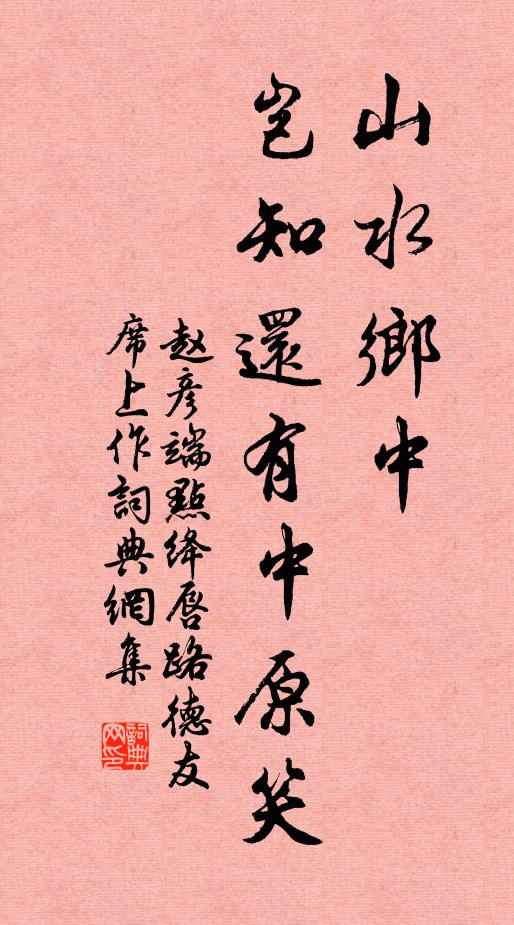 山水鄉中
豈知還有中原笑
赵彦端點绛唇路德友
席上作詞典網集
詞典網印